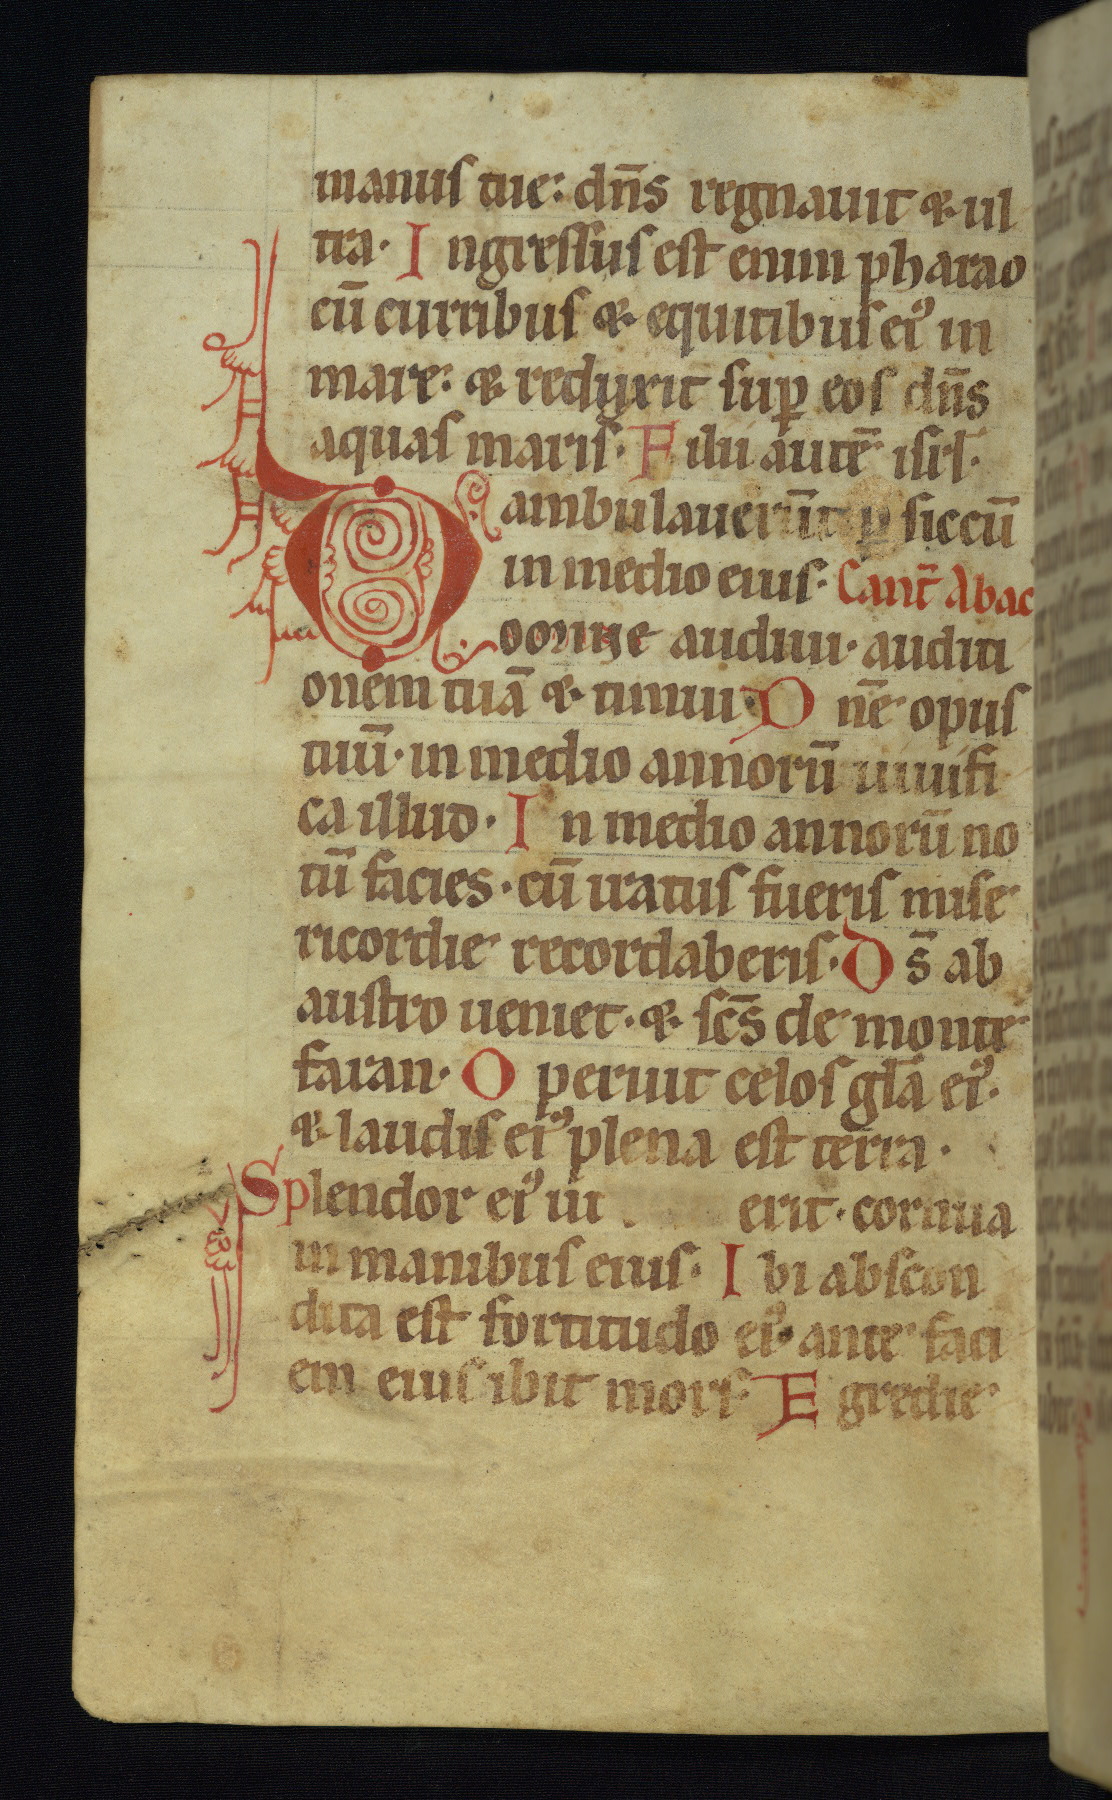 manus tue: dn̄s regnauit ⁊ ul
tra· Ingressus est enim pharao
cū curribus ⁊ equitibus eiꝰ in
mare: ⁊ reduxit suꝑ eos dn̄s
aquas maris· Filii autē isrl̄·
ambulauerūt ꝑ siccū
in medio eius· Cant̄ Abac
Doomne audiui· auditi
onem tuā ⁊ timui· Dn̄e opus
tuū· in medio annorū uiuifi
ca illud· In medio annorū no
tū facies· cū iratus fueris mise
ricordie recordaberis· Ds̄ ab
austro ueniet· ⁊ sc̄s de monte
faran· Operuit celos gl̄a eiꝰ·
⁊ laudis eiꝰ plena est terra·
Splendor eiꝰ ut erit· cornua
in manibus eius· Ibi abscon
dita est fortitudo eiꝰ· ante faci
em eius ibit mors· Egredie